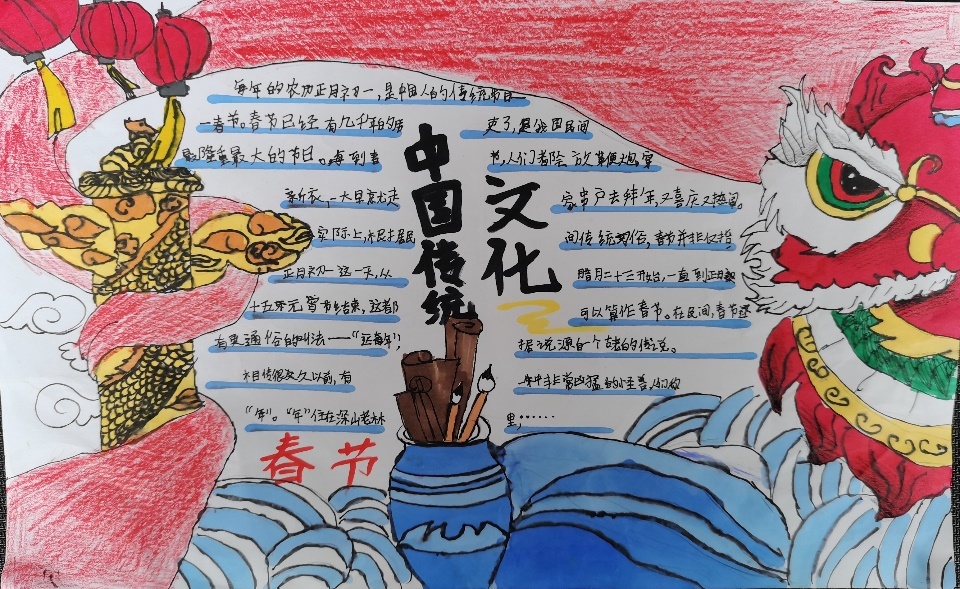 每年的农历正月初一,是中国人的传统节日
一春节。春节已经有几千年的历
史了,是我国民间
最隆重最大的节日。每到春
节,人们都除放鞭炮,穿
新衣,一大早就走
家串户去拜年,又喜庆又热闹。
实际上,
间传统习俗,春节并非仅指
正月初一这一天,从
腊月二十三开始,一直到正月
十五元宵节结束,这都
可以算作春节。在民间,春节还
有更通俗的叫法——“过年”,
据说源自一个古老的传说。
相传很久以前,有
一种非常凶猛的
“年”。“年”住在深山老林
里,……
中国传统
文化
春节